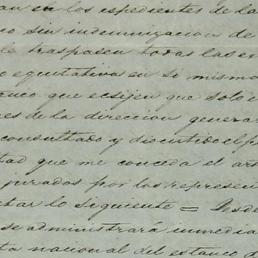 an en los espedientes de la
o sin indemnizacion de
le traspasen todas las ex
o equitativa en se mismo
arco que ecsijen que solo e
es de la direccion genera
consultado y discutido el p
tad que me conceda el ar
jurados por los represen
tar lo siguiente = Desde
se administrará inmedia
ta nacional del estanco d